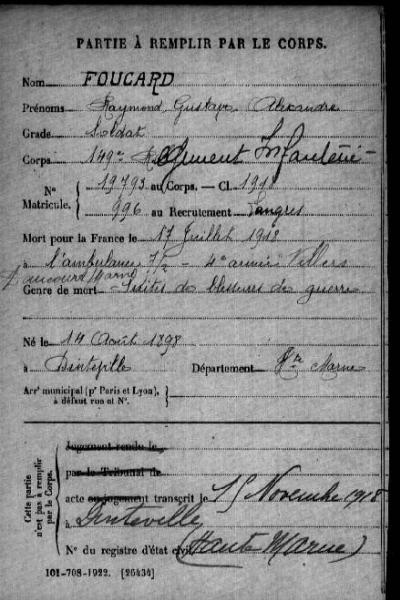 PARTIE À REMPLIR PAR LE CORPS.
Nom FOUCARD
Prénoms Raymond Gustave Alexandre
Grade Soldat
Corps 149e Régiment Infanterie
N° Matricule. { 19793 au Corps. — Cl. 1918
996 au Recrutement Langres
Mort pour la France le 17 Juillet 1918
à l'ambulance 7/2 - 4e armée Villers
aucourt Marne
Genre de mort Suites de blessures de guerre
Né le 14 Août 1898
à Dinteville Département Hte Marne
Arrt municipal (pr Paris et Lyon), à défaut rue et N°.
Cette partie n'est pas à remplir par le Corps.
Jugement rendu le
par le Tribunal de
acte ou jugement transcrit le 15 Novembre 1918
à Dinteville
N° du registre d'état civil (Haute Marne)
101-708-1922. [26434]